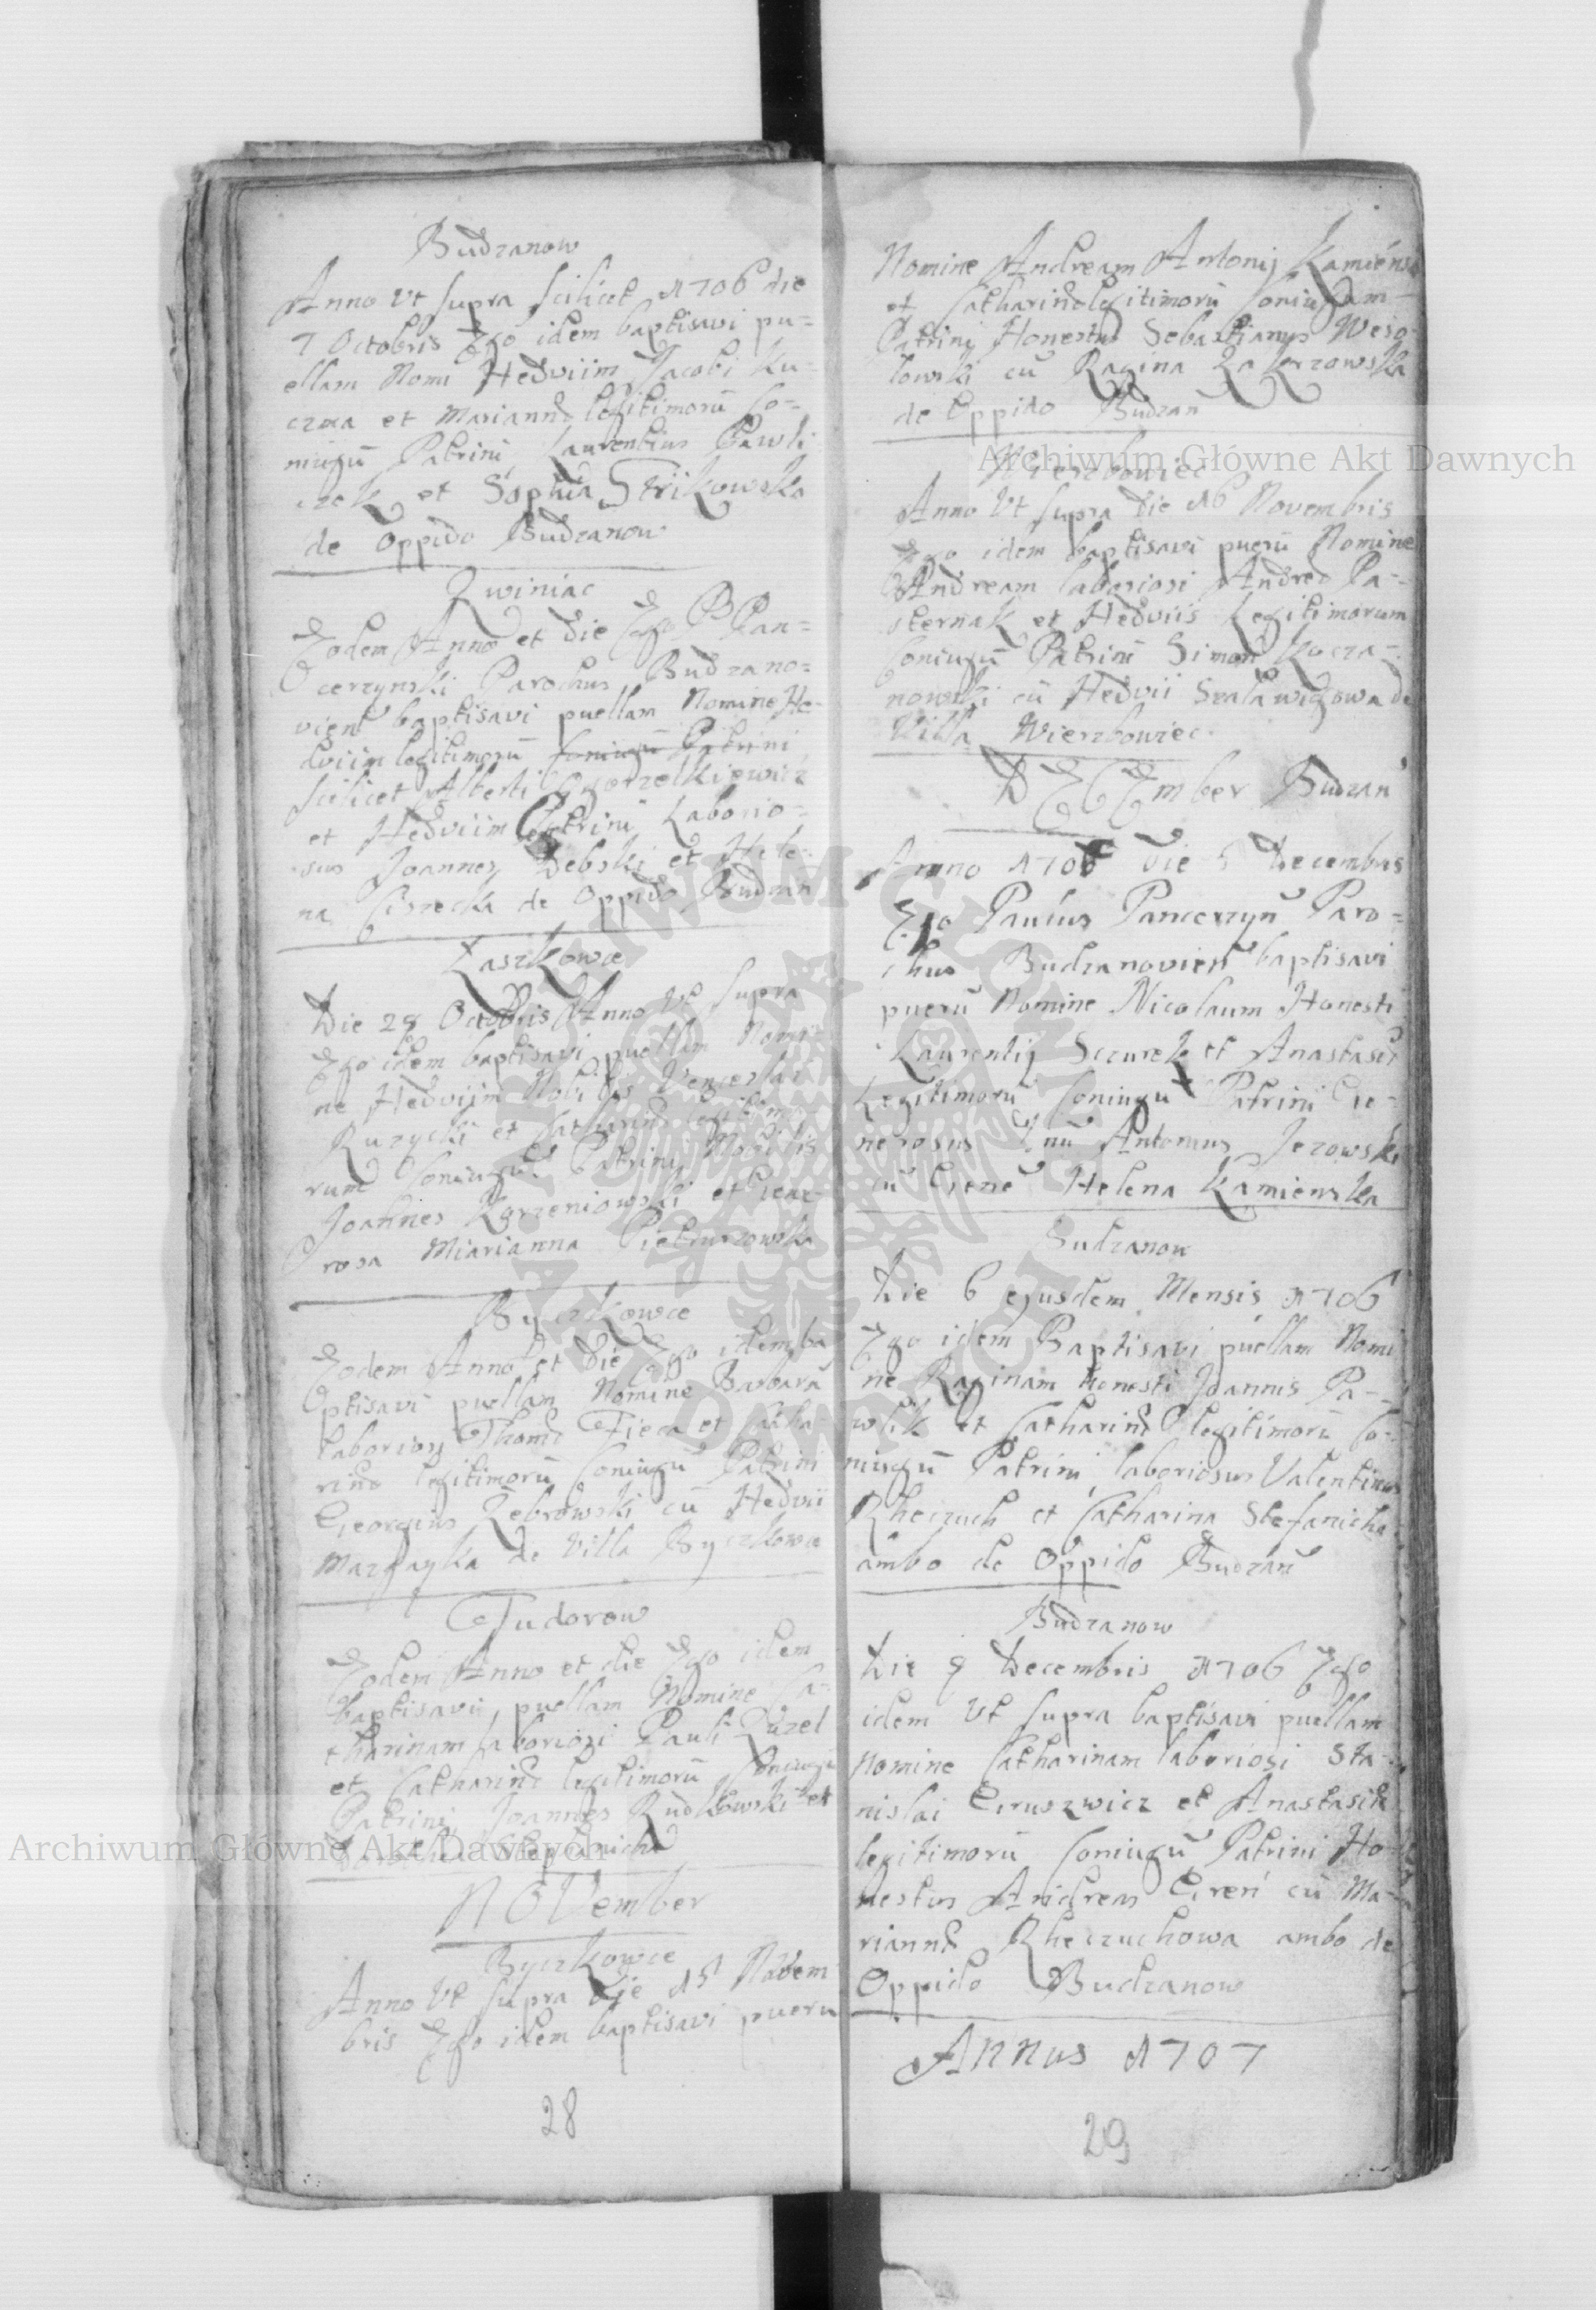 Budzanow
Anno Vt supra scilicet 1706 die
7 Octobris Ego idem baptisavi pu=
ellam Nomi Hedviim Jacobi Ku=
czma et Mariannæ legitimorū Co=
niugū Patrini Laurentius Pawli
czek et Sophia Strikowska
de Oppido Budzanow
Zwiniac
Eodem Anno et die Ego P Pan=
cerzynski Parochus Budzano=
vien baptisavi puellam Nomine He=
dviim legitimorū Coniugū Patrini
scilicet Alberti Gorzelkiewicz
et Hedviim Patrini Laborio=
sus Joannes Debski et Hele=
na Ciszecka de Oppido Budzan
Laszkowce
Die 28 Octobris Anno Vt supra
Ego idem baptisavi puellam Nomi
ne Hedviim Nobilis Venceslai
Ruzycki et Catharinæ legitimo
rum Coniugū Patrini Nobilis
Joannes Korzeniowski et Gene=
rosa Miarianna Pietruszowska
Byczkowce
Eodem Anno et Die Ego idem ba
ptisavi puellam Nomine Barbarā
laboriosi Thomæ Fieca et Catha=
rinæ legitimorū Coniugū Patrini
Georgius Zebrowski cū Hedvii
de Villa Byczkowce
Tudorow
Eodem Anno et die Ego idem
baptisavi puellam Nomine Ca=
tharinam laboriosi Pauli Duzel
et Catharinæ legitimorū Coniugū
Patrini Joannes Rudkowski et
Stephanicha
NOVember
Byczkowce
Anno Vt supra Die 15 Novem
bris Ego idem baptisavi puerū
28
Nomine Andream Antonij Kamiensk
et Catharinæ legitimorū Coniugum
Patrini Honestus Sebastianus Weso=
lowski cū Ragina Zakrzowska
de Oppido Budzan
Wierzbowiec
Anno Vt supra Die 16 Novembris
Ego idem baptisavi puerū Nomine
Andream laboriosi Andreæ Pa=
sternak et Hedviis Legitimorum
Coniugū Patrini Simon Kocza=
nowski cū Hedvii Szalawigowa de
Villa Wierzbowiec
DECEmber Budzan
Anno 1706 Die 5 Decembris
Ego Paulus Pancerzyn Paro=
chus Budzanovien baptisavi
puerū Nomine Nicolaum Honesti
Laurentij Sczurek et Anastasiæ
Legitimorū Coniugū Patrini Ge=
nerosus Dnū Antonius Jezowski
cū Gene Helena Kamienska
Budzanow
Die 6 ejusdem Mensis 1706
Ego idem Baptisavi puellam Nomi
ne Raginam honesti Joannis Pa=
wlik et Catharinæ legitimorū Co=
niugū Patrini laboriosus Valentinus
Rheczuch et Catharina Stefanicha
ambo de Oppido Budzan
Budzanow
Die 9 Decembris 1706 Ego
idem Vt supra baptisavi puellam
Nomine Catharinam laboriosi Sta=
nislai Giruszwicz et Anastasiæ
legitimorū Coniugū Patrini Ho=
nestus Andreas Giren cū Ma=
riannæ Rheczuchowa ambo de
Oppido Budzanow
Annus 1707
29
Archiwum Główne Akt Dawnych
Archiwum Główne Akt Dawnych
ARCHIWUM GŁÓWNE AKT DAWNYCH